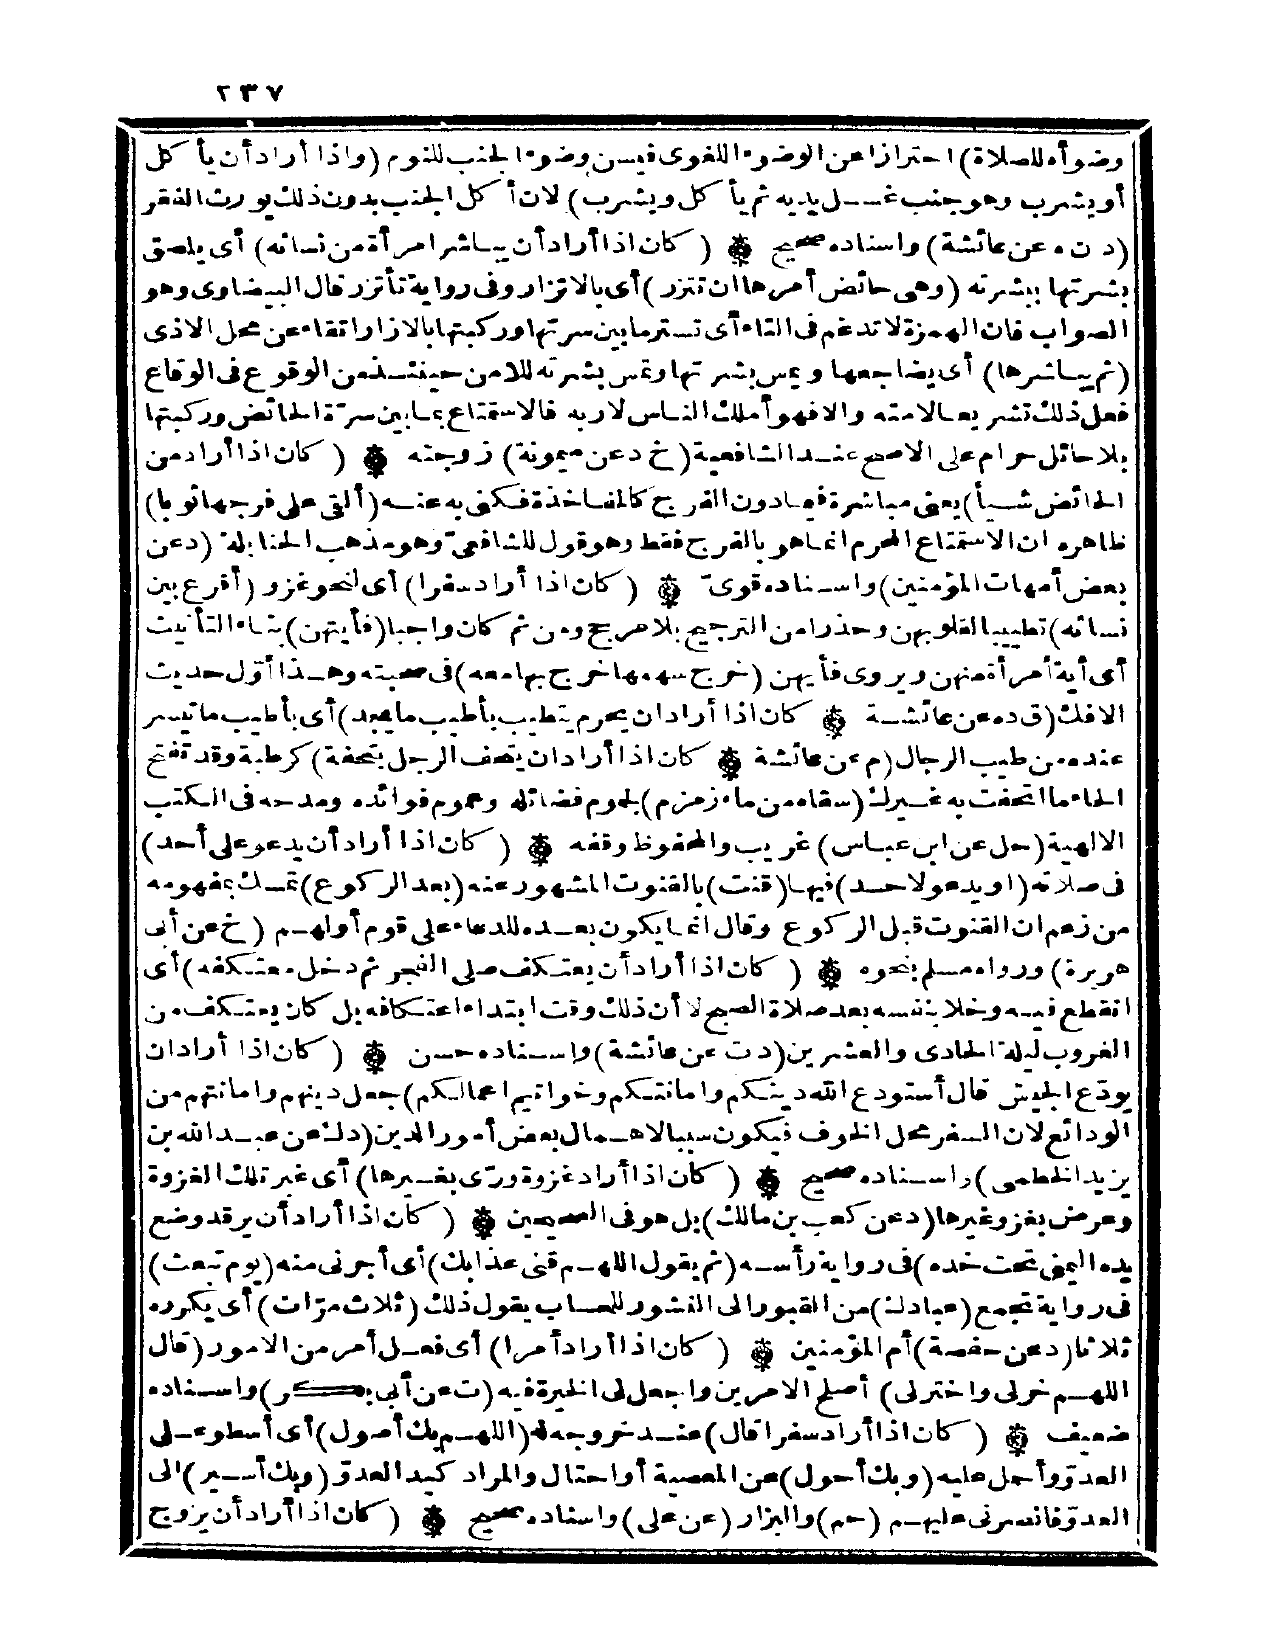 ٢٣٧
وضوأه للصلاة) احترازا عن الوضوء اللغوى فيسن وضوء الجنب للنوم (واذا أراد أن يأكل
أو يشرب وهو جنب غسل يديه ثم يأكل ويشرب) لان أكل الجنب بدون ذلك يورث الفقر
(د ن ه عن عائشة) واسناده صحيح ۞ (كان اذا أراد أن يباشر امرأة من نسائه) أى يلصق
بشرتها ببشرته (وهى حائض أمرها ان تتزر) أى بالاتزار وفى رواية تأتزر قال البيضاوى وهو
الصواب فان الهمزة لا تدغم فى التاء أى تستر ما بين سرتها وركبتها بالازار اتقاء عن محل الاذى
(ثم يباشرها) أى يضاجعها ويمس بشرتها وتمس بشرته للامن حينئذ من الوقوع فى الوقاع
فعل ذلك تشريعا لامته والا فهو أملك الناس لاربه فالاستمتاع بما بين سرّة الحائض وركبتها
بلا حائل حرام على الاصح عند الشافعية (خ د عن ميمونة) زوجته ۞ (كان اذا أراد من
الحائض شيأ) يعنى مباشرة فيما دون الفرج كالمفاخذة فكنى به عنه (ألقى على فرجها ثوبا)
ظاهره ان الاستمتاع المحرم انما هو بالفرج فقط وهو قول للشافعىّ وهو مذهب الحنابلة (د عن
بعض أمهات المؤمنين) واسناده قوىّ ۞ (كان اذا أراد سفرا) أى لنحو غزو (أقرع بين
نسائه) تطييبا لقلوبهن وحذرا من الترجيح بلا مرجح ومن ثم كان واجبا (فأيتهن) بتاء التأنيث
أى أية أمرأة منهن ويروى فأيهن (خرج سهمها خرج بها معه) فى صحبته وهذا أوّل حديث
الافك (ق د ه عن عائشة ۞ كان اذا أراد ان يحرم يتطيب بأطيب ما يجد) أى بأطيب ما تيسر
عنده من طيب الرجال (م عن عائشة ۞ كان اذا أراد ان يتحف الرجل بتحفة) كرطبة وقد تفتح
الحاء ما اتحفت به غيرك (سقاه من ماء زمزم) لجموم فضائله وعموم فوائده ومدحه فى الكتب
الالهية (حل عن ابن عباس) غريب والمحفوظ وقفه ۞ (كان اذا أراد أن يدعو على أحد)
فى صلاته (او يدعو لاحد) فيها (قنت) بالقنوت المشهور عنه (بعد الركوع) تمسك بمفهومه
من زعم ان القنوت قبل الركوع وقال انما يكون بعده للدعاء على قوم أو لهم (خ عن أبى
هريرة) ورواه مسلم بنحوه ۞ (كان اذا أراد أن يعتكف صلى الفجر ثم دخل معتكفه) أى
انقطع فيه وخلا بنفسه بعد صلاة الصبح لا أن ذلك وقت ابتداء اعتكافه بل كان يعتكف من
الغروب ليلة الحادى والعشرين (د ت عن عائشة) واسناده حسن ۞ (كان اذا أراد ان
يودّع الجيش قال أستودع الله دينكم وامانتكم وخواتيم اعمالكم) جعل دينهم وامانتهم من
الودائع لان السفر محل الخوف فيكون سببا لاهمال بعض أمور الدين (د ك عن عبد الله بن
يزيد الخطمى) واسناده صحيح ۞ (كان اذا أراد غزوة ورّى بغيرها) أى غير تلك الغزوة
وعرض بغزو غيرها (د عن كعب بن مالك) بل هو فى الصحيحين ۞ (كان اذا أراد أن يرقد وضع
يده اليمنى تحت خده) فى رواية رأسه (ثم يقول اللهم قنى عذابك) أى أجرنى منه (يوم تبعث)
فى رواية تجمع (عبادك) من القبور الى النشور للحساب يقول ذلك (ثلاث مرّات) أى يكرره
ثلاثا (د عن حفصة) أم المؤمنين ۞ (كان اذا أراد أمرا) أى فعل أمر من الامور (قال
اللهم خر لى واختر لى) أصلح الامرين واجعل لى الخيرة فيه (ت عن أبى بكر) واسناده
ضعيف ۞ (كان اذا أراد سفرا قال) عند خروجه له (اللهم بك أصول) أى أسطو على
العدوّ وأحمل عليه (وبك أحول) عن المعصية أو احتال والمراد كيد العدوّ (وبك أسير) الى
العدوّ فانصرنى عليهم (حم) والبزار (عن على) واسناده صحيح ۞ (كان اذا أراد أن يزوج